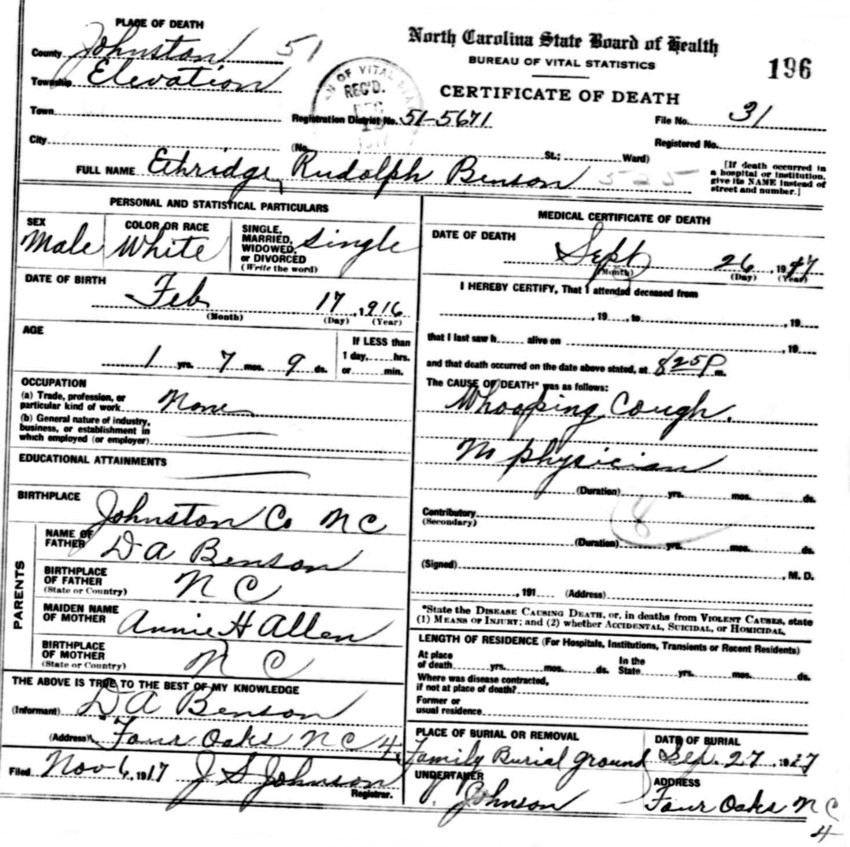 PLACE OF DEATH
County Johnston 51
Township Elevation
Town
City
North Carolina State Board of Health
BUREAU OF VITAL STATISTICS
196
CERTIFICATE OF DEATH
OF VITAL
REC'D.
DEC
Registration District No. 51-5671
File No. 31
Registered No.
(No. St.; Ward)
[If death occurred in a hospital or institution, give its NAME instead of street and number.]
FULL NAME Ethridge, Rudolph Benson 525
PERSONAL AND STATISTICAL PARTICULARS
SEX Male
COLOR OR RACE White
SINGLE, MARRIED, WIDOWED, or DIVORCED (Write the word) Single
DATE OF BIRTH
Feb 17, 1916
(Month) (Day) (Year)
AGE
1 yrs. 7 mos. 9 ds.
If LESS than 1 day, hrs. or min.
OCCUPATION
(a) Trade, profession, or particular kind of work None
(b) General nature of industry, business, or establishment in which employed (or employer)
EDUCATIONAL ATTAINMENTS
BIRTHPLACE Johnston Co N C
PARENTS
NAME OF FATHER D A Benson
BIRTHPLACE OF FATHER (State or Country) N C
MAIDEN NAME OF MOTHER Annie H Allen
BIRTHPLACE OF MOTHER (State or Country) N C
THE ABOVE IS TRUE TO THE BEST OF MY KNOWLEDGE
(Informant) D A Benson
(Address) Four Oaks N C 4
Filed Nov 6, 1917 J S Johnson
Registrar.
MEDICAL CERTIFICATE OF DEATH
DATE OF DEATH
Sept 26, 1917
(Month) (Day) (Year)
I HEREBY CERTIFY, That I attended deceased from
, 19 , to , 19
that I last saw h alive on , 19
and that death occurred on the date above stated, at 825P m.
The CAUSE OF DEATH* was as follows:
Whooping Cough.
No physician
(Duration) yrs. mos. ds.
Contributory (Secondary) 8
(Duration) yrs. mos. ds.
(Signed) , M. D.
, 191 (Address)
*State the DISEASE CAUSING DEATH, or, in deaths from VIOLENT CAUSES, state
(1) MEANS OF INJURY; and (2) whether ACCIDENTAL, SUICIDAL, or HOMICIDAL.
LENGTH OF RESIDENCE (For Hospitals, Institutions, Transients or Recent Residents)
At place of death yrs. mos. ds. In the State yrs. mos. ds.
Where was disease contracted, if not at place of death?
Former or usual residence
PLACE OF BURIAL OR REMOVAL
Family Burial ground
DATE OF BURIAL
Sep. 27 1917
UNDERTAKER
Johnson
ADDRESS
Four Oaks N C
4